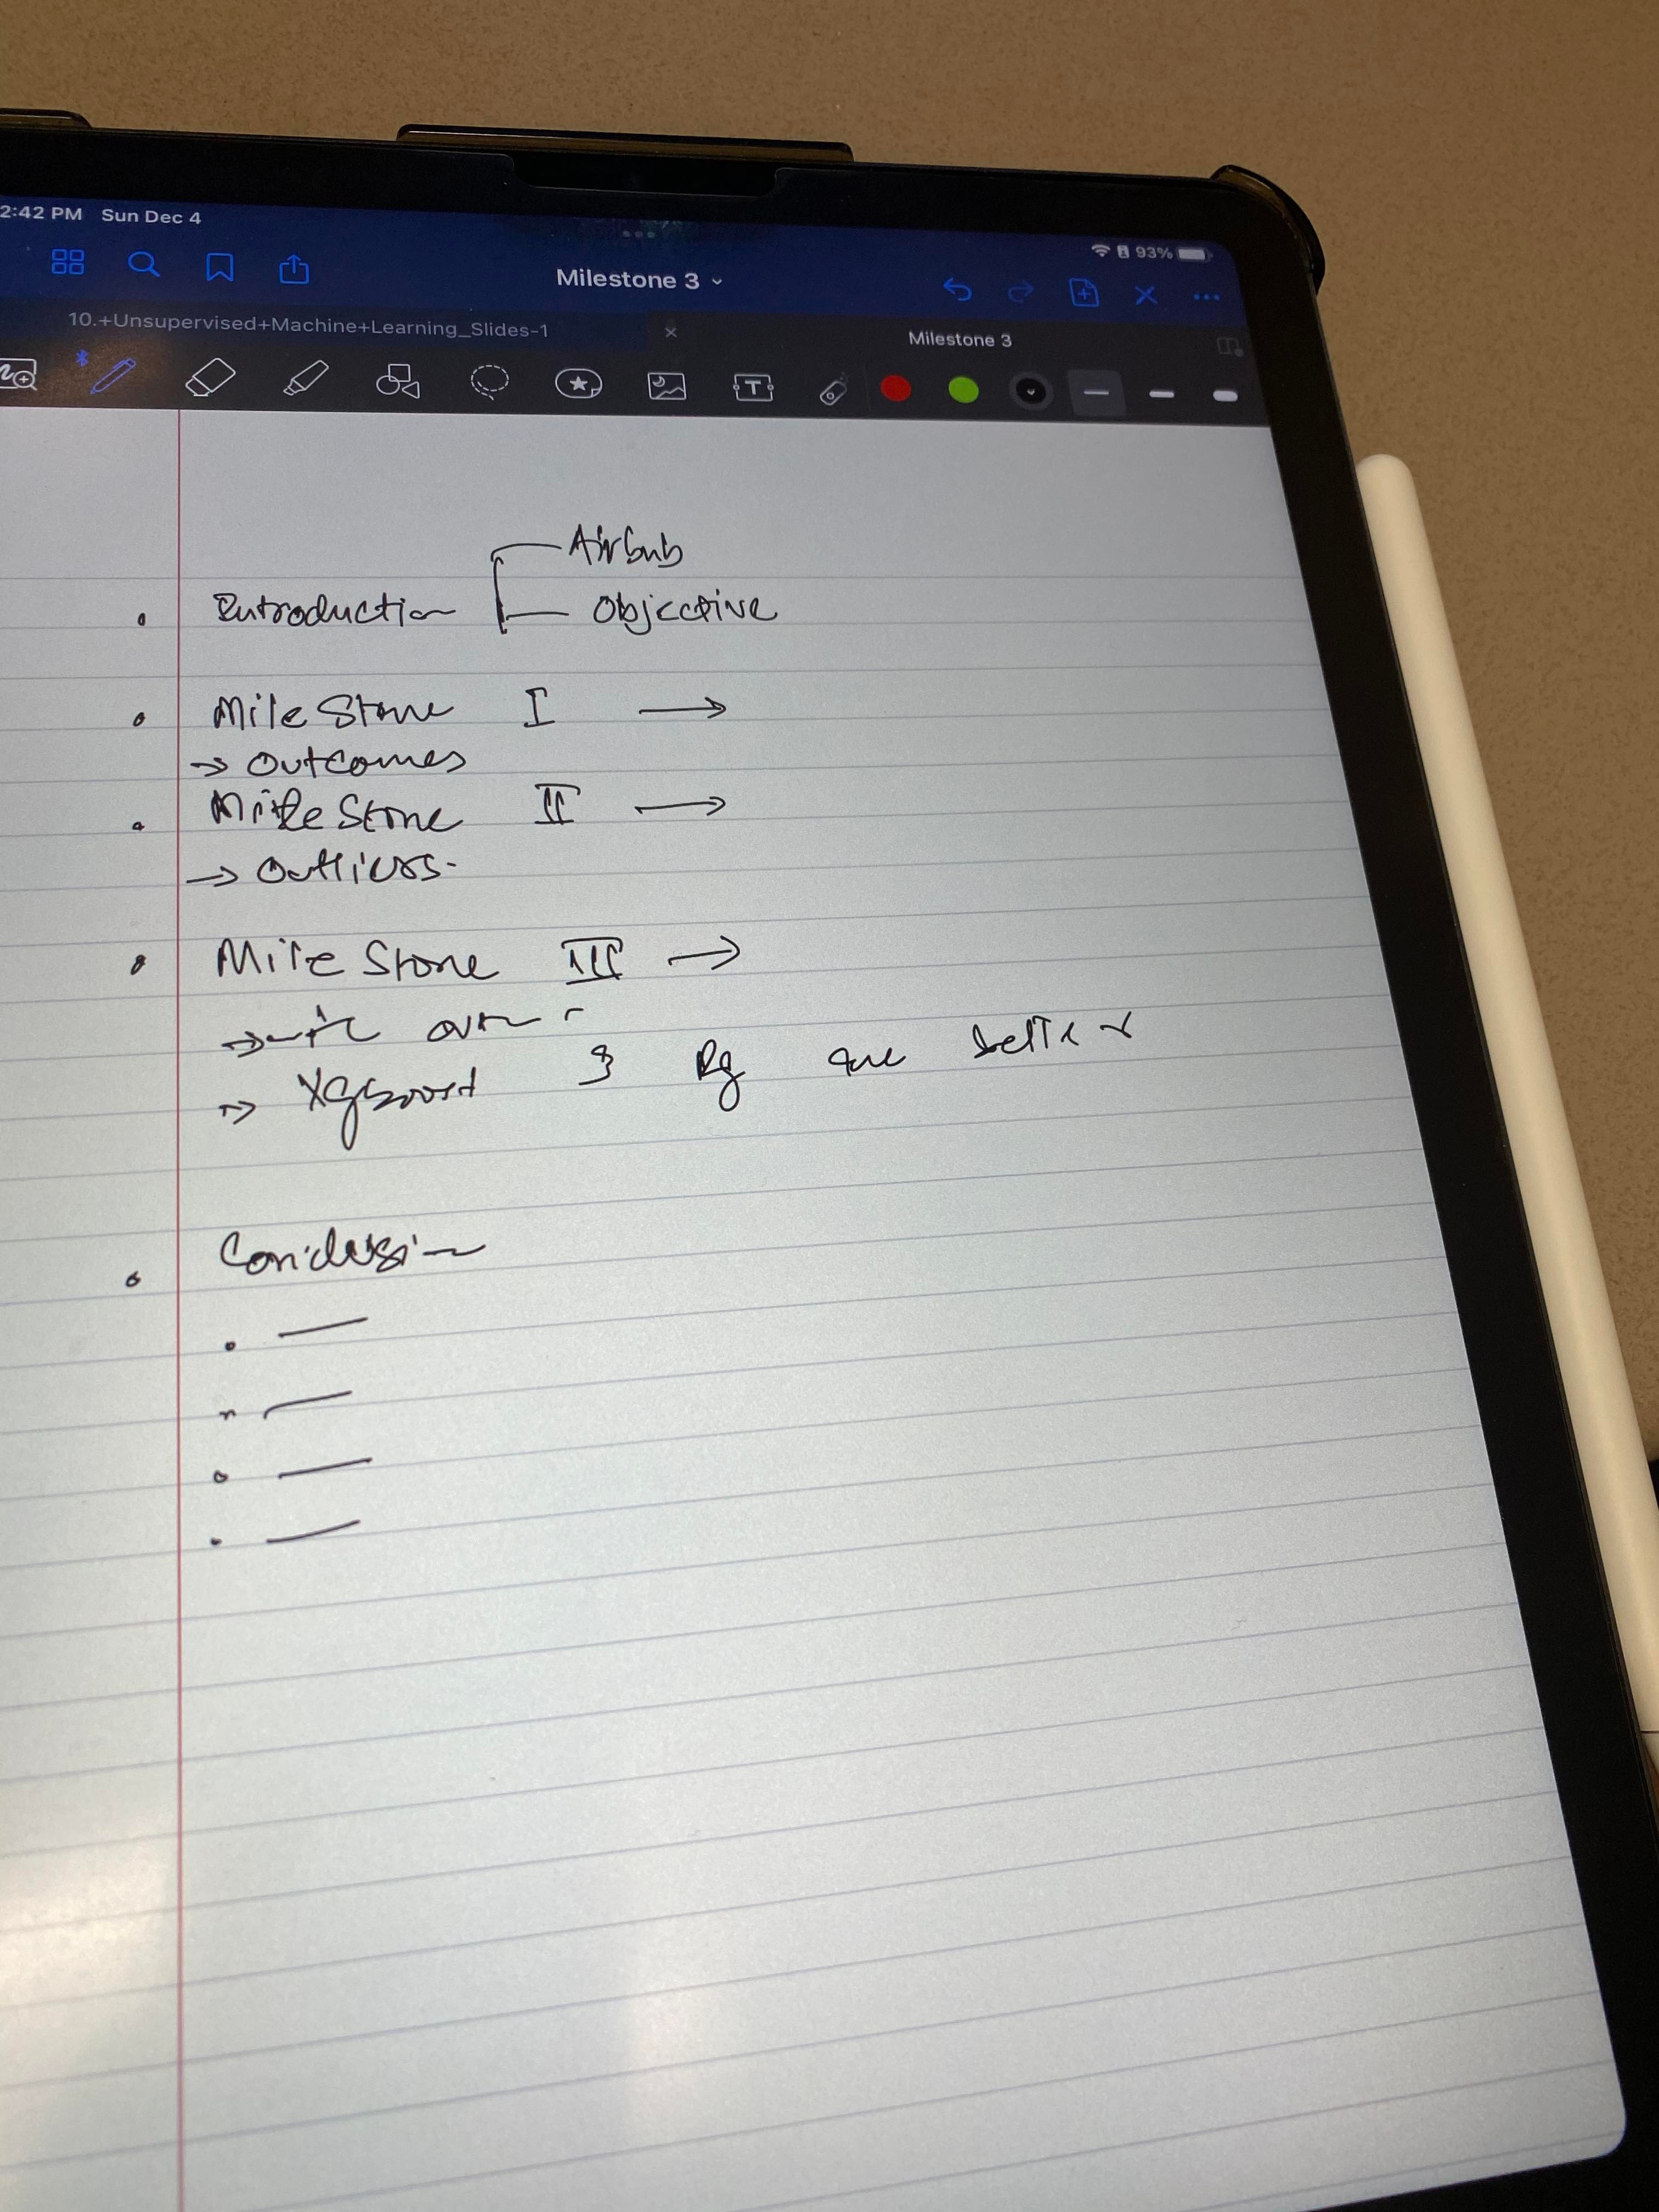 2:42 PM Sun Dec 4
93%
Milestone 3
10.+Unsupervised+Machine+Learning_Slides-1
Milestone 3
T
Airbnb
Introduction
Objective
Mile Stone I →
→ Outcomes
Mile Stone II →
→ Outliers.
Mile Stone III →
→ Xgboost & are better
Conclusion